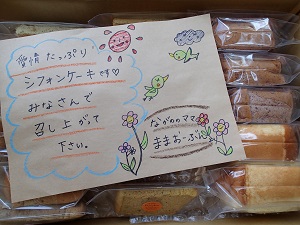 愛情たっぷり
シフォンケーキです♡
みなさんで
召し上がって
下さい。
ながのママ
ままおーぶん